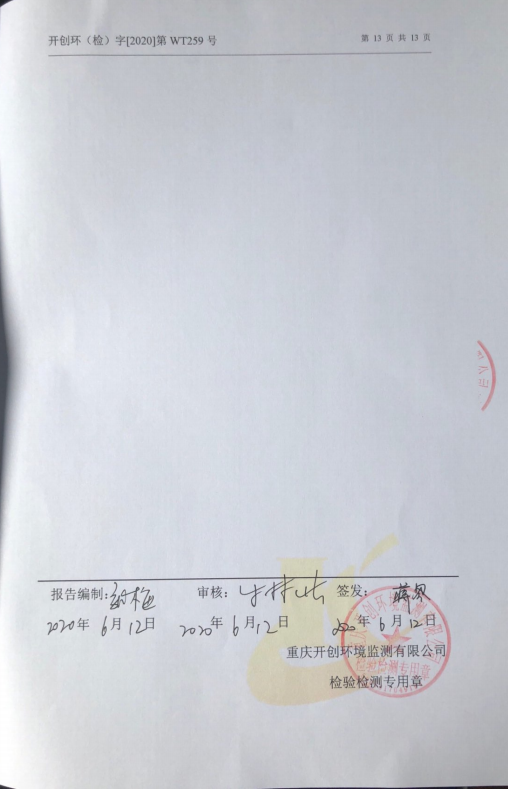 开创环（检）字[2020]第 WT259 号
第 13 页 共 13 页
报告编制： 审核： 签发：
2020年 6月12日 2020年 6月12日 2020年 6月12日
重庆开创环境监测有限公司
检验检测专用章